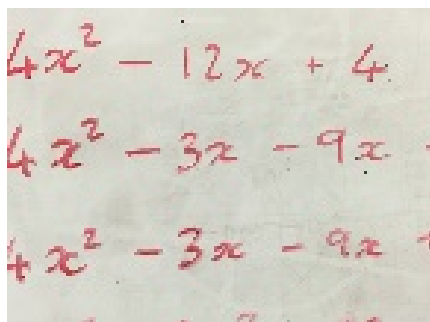 4x² - 12x + 4
4x² - 3x - 9x
4x² - 3x - 9x